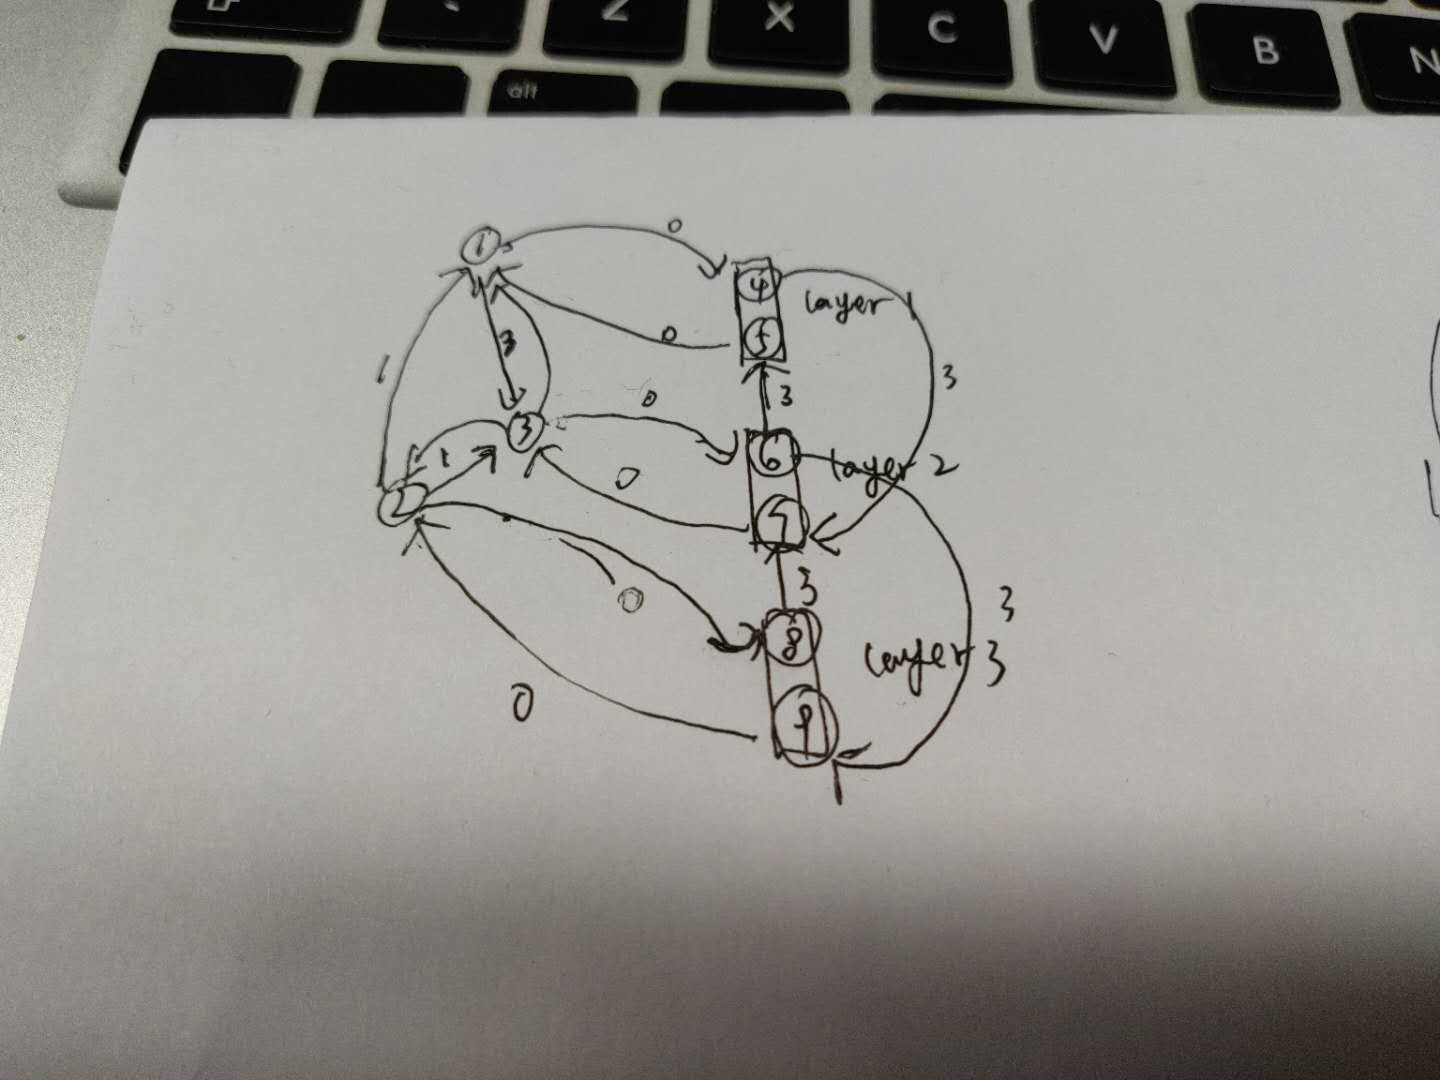 Z X C V B N
alt
1 0
4 layer 1
0 5
1 3 3 3
0
3 6 layer 2
1 0
2 7
3
0 3
8 layer 3
0 9